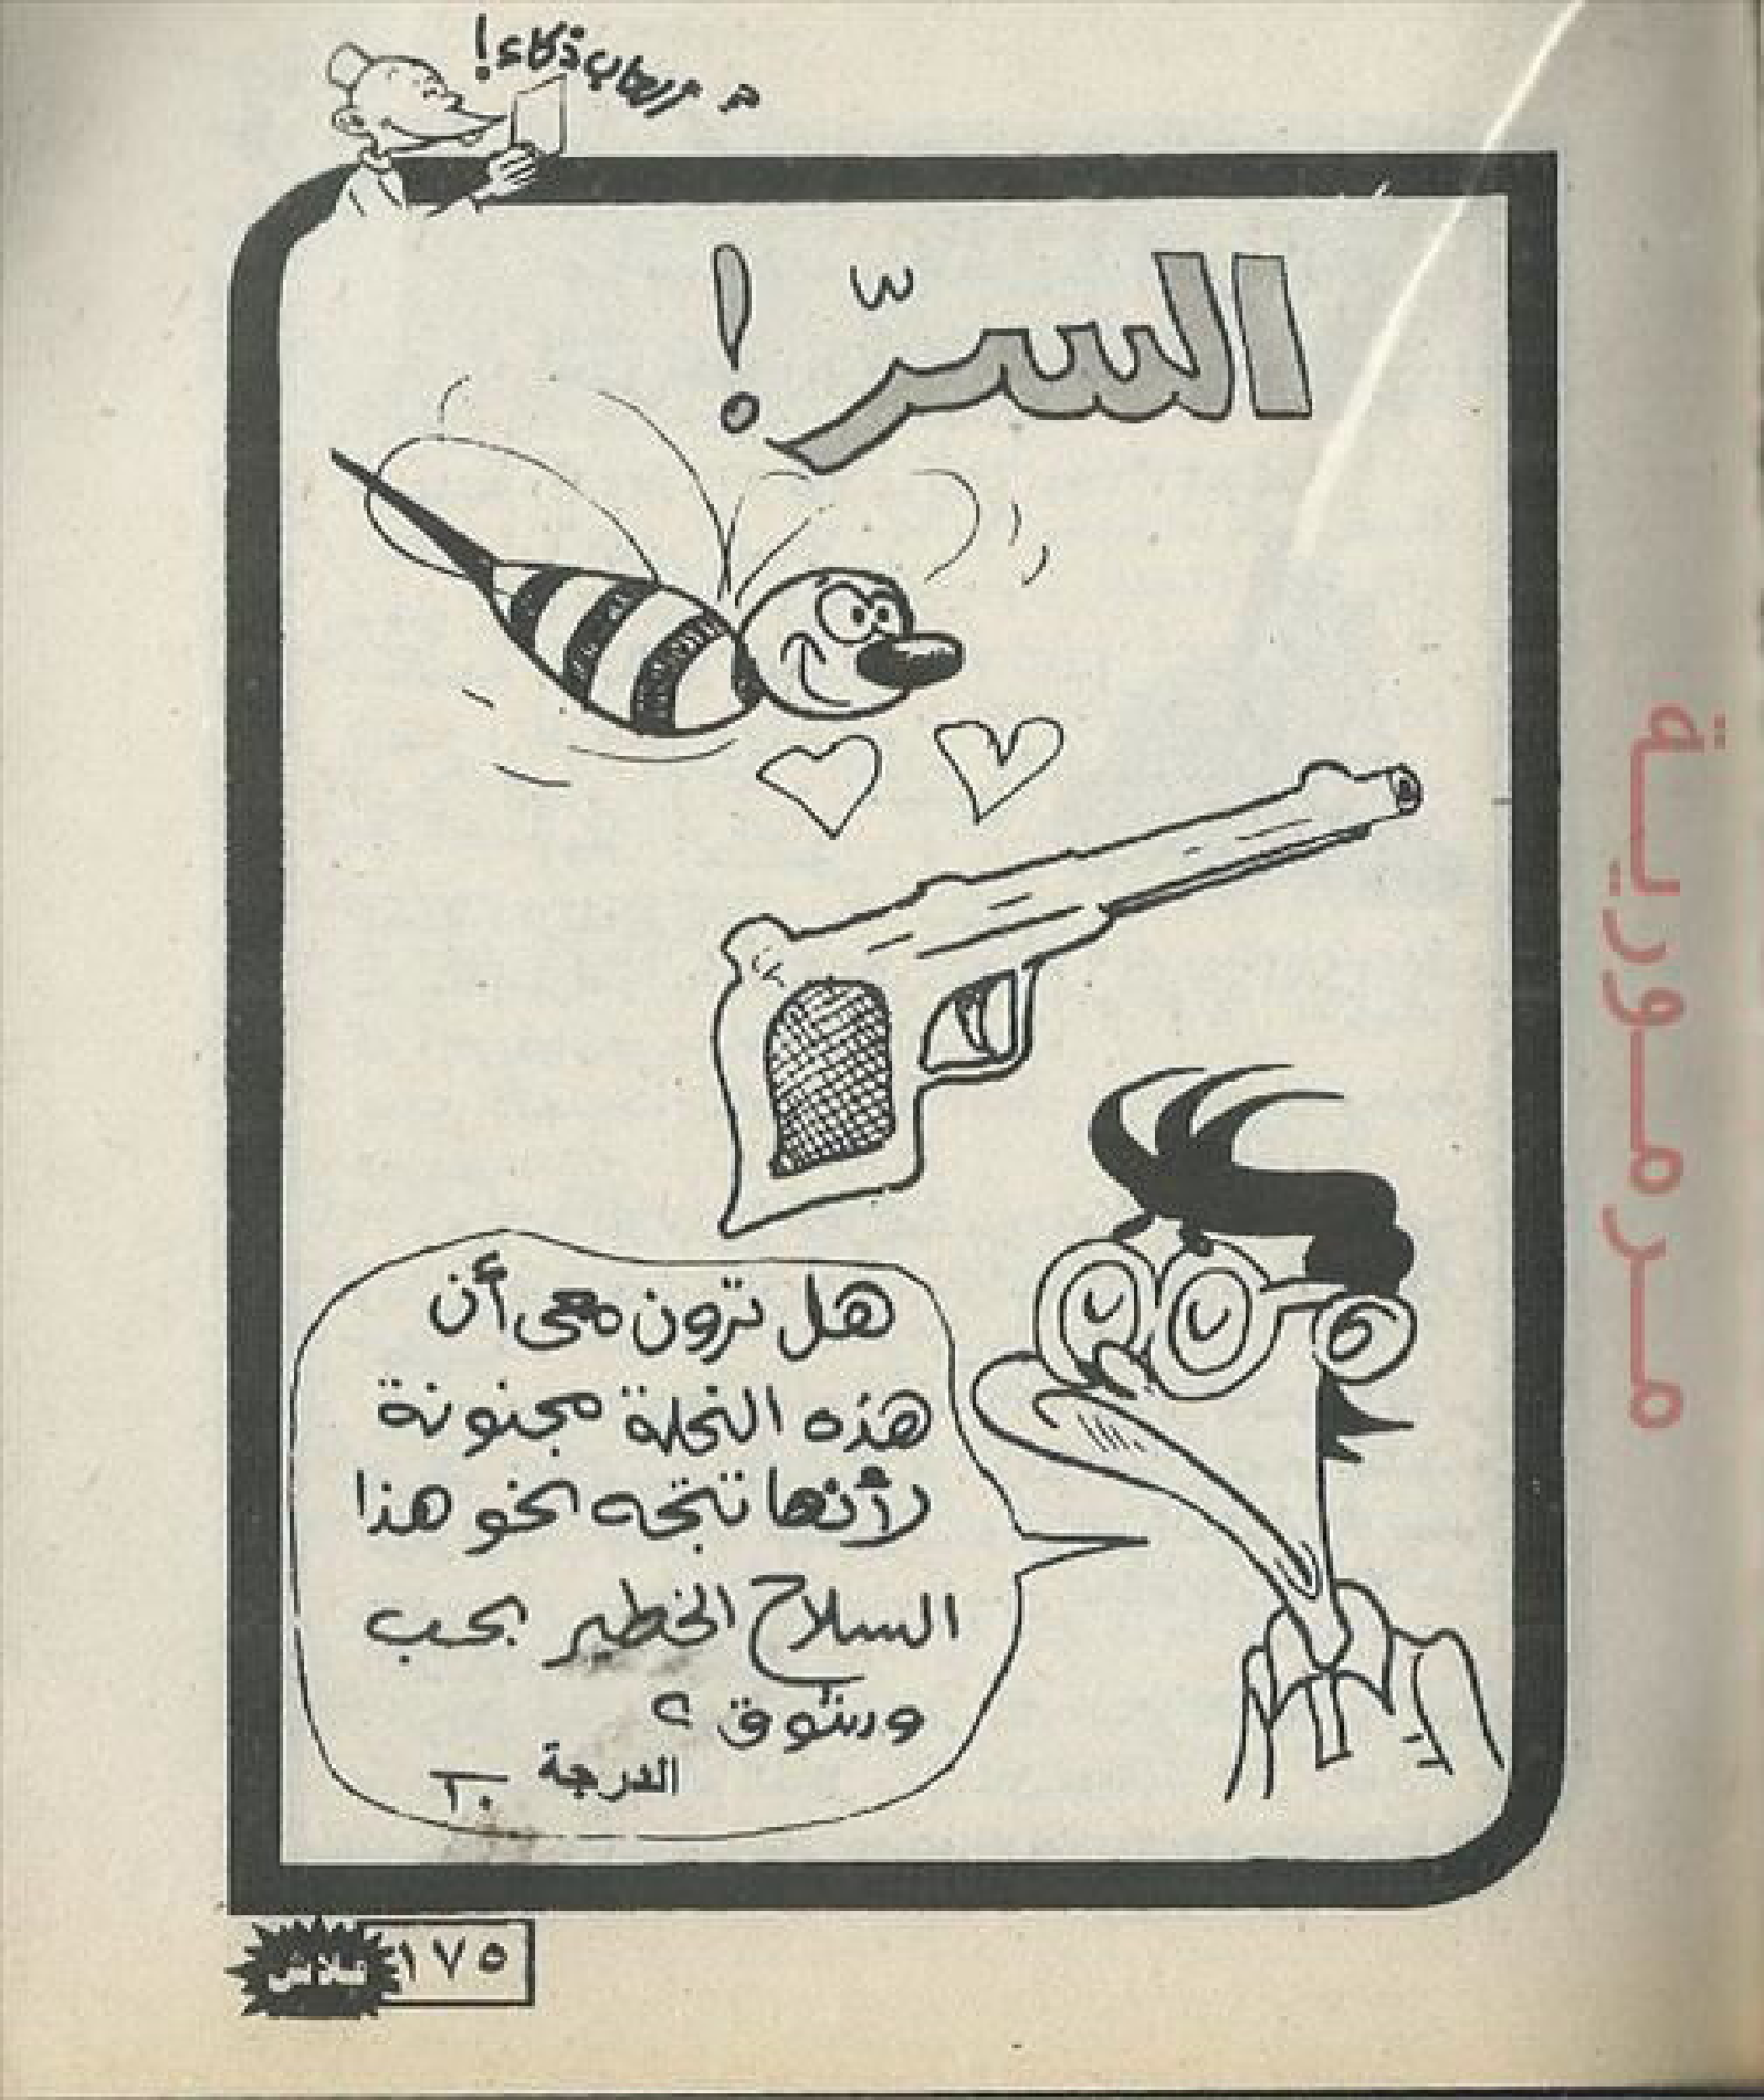 ألعاب ذكاء!
السرّ!
هل ترون معى أن
هذه النحلة مجنونة
لأنها تتجه نحو هذا
السلاح الخطير بحب
وشوق ؟
الدرجة ٢٠
١٧٥
فلاش
مرمورية